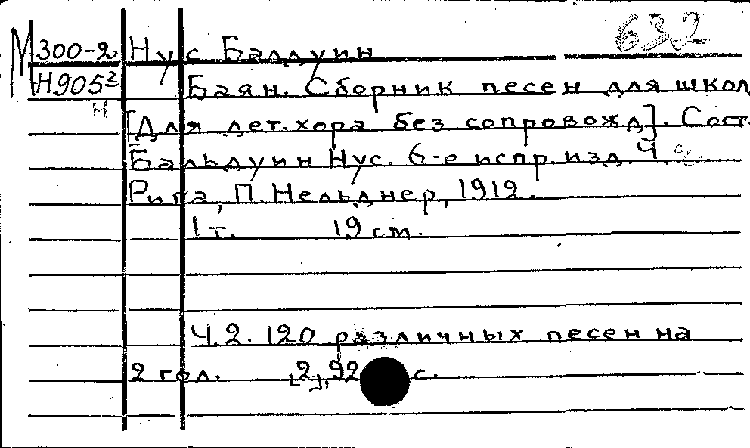 63.2
М300-2 Нус Балдуин
Н905² Баян. Сборник песен для школ
Н [Для дет. хора без сопровожд]. Сост.
Бальдуин Нус. 6-е испр. изд. Ч.
Рига, П. Нельднер, 1912.
1 т. 19 см.
Ч. 2. 120 различных песен на
2 гол. [2], 92 с.